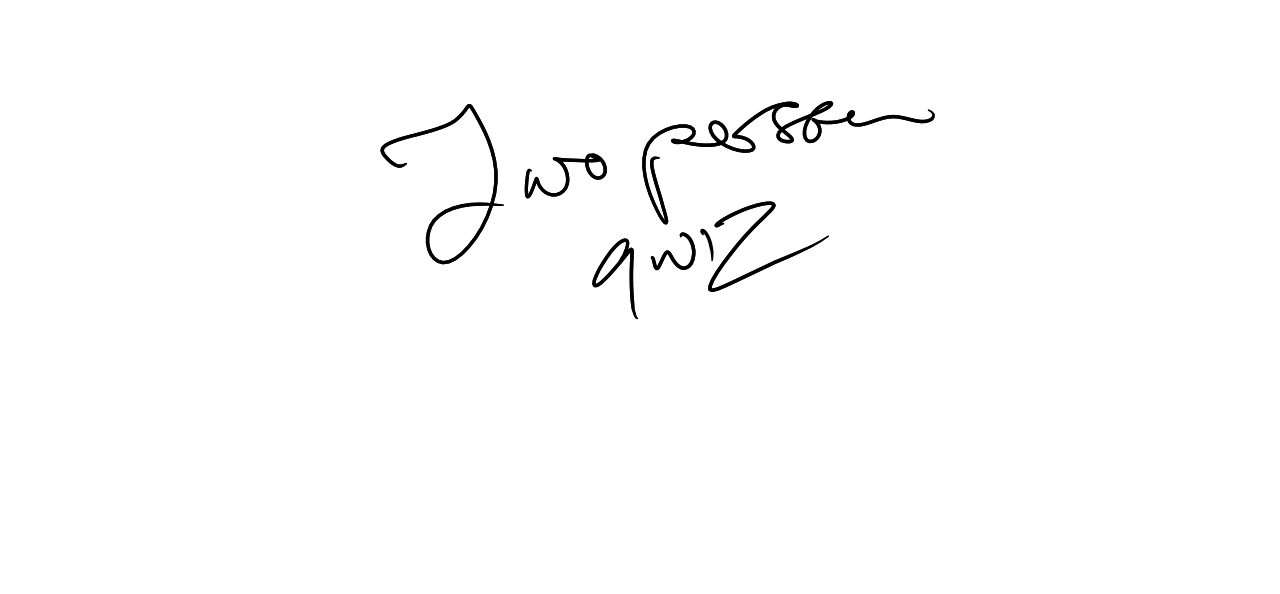 Two person
quiz